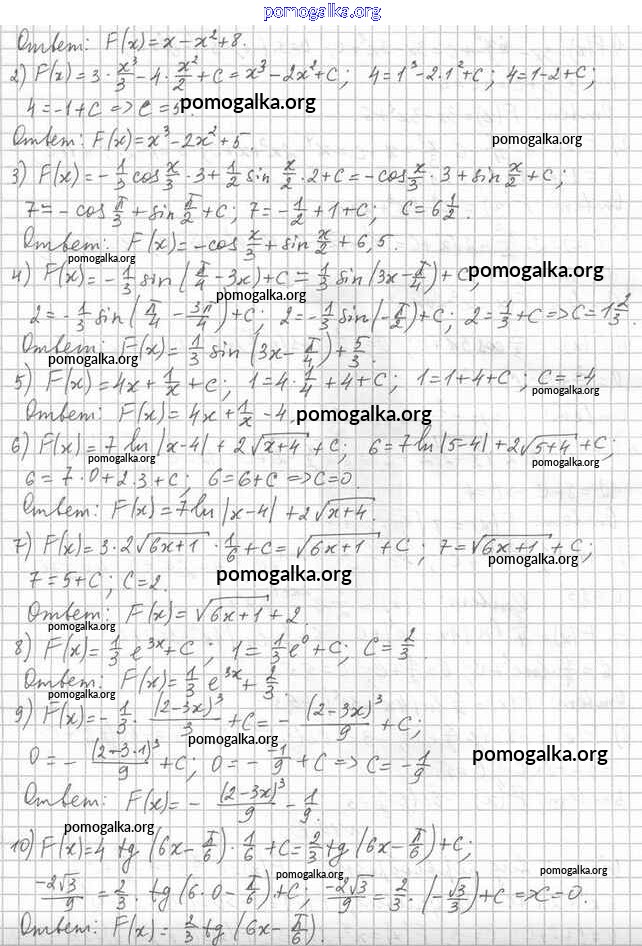 pomogalka.org
Ответ: F(x)=x-x²+8.
2) F(x)=3·x³/3-4·x²/2+C=x³-2x²+C; 4=1³-2·1²+C; 4=1-2+C;
4=-1+C => C=5. pomogalka.org
Ответ: F(x)=x³-2x²+5. pomogalka.org
3) F(x)=-1/3 cos x/3 ·3+1/2 sin x/2 ·2+C=-cos x/3 ·3+sin x/2+C;
7=-cos π/3+sin π/2+C; 7=-1/2+1+C; C=6 1/2.
Ответ: F(x)=-cos x/3+sin x/2+6,5.
pomogalka.org
4) F(x)=-1/3 sin(π/4-3x)+C=1/3 sin(3x-π/4)+C; pomogalka.org
pomogalka.org
2=-1/3 sin(π/4-3π/4)+C; 2=-1/3 sin(-π/2)+C; 2=1/3+C=>C=1 2/3.
Ответ: F(x)=1/3 sin(3x-π/4)+5/3.
pomogalka.org
5) F(x)=4x+1/x+C; 1=4·1/4+4+C; 1=1+4+C; C=-4
pomogalka.org
Ответ: F(x)=4x+1/x-4. pomogalka.org
6) F(x)=7 ln|x-4|+2√(x+4)+C; 6=7 ln|5-4|+2√(5+4)+C;
pomogalka.org pomogalka.org
6=7·0+2·3+C; 6=6+C=>C=0.
Ответ: F(x)=7 ln|x-4|+2√(x+4).
7) F(x)=3·2√(6x+1)·1/6+C=√(6x+1)+C; 7=√(6x+1)+C;
pomogalka.org
7=5+C; C=2. pomogalka.org
Ответ: F(x)=√(6x+1)+2.
pomogalka.org
8) F(x)=1/3 e^(3x)+C; 1=1/3 e⁰+C; C=2/3.
Ответ: F(x)=1/3 e^(3x)+2/3.
pomogalka.org
9) F(x)=-1/3·(2-3x)³/3+C=-(2-3x)³/9+C;
pomogalka.org
0=-(2-3·1)³/9+C; 0=-(-1)/9+C=>C=-1/9 pomogalka.org
Ответ: F(x)=-(2-3x)³/9-1/9.
pomogalka.org
10) F(x)=4 tg(6x-π/6)·1/6+C=2/3 tg(6x-π/6)+C;
pomogalka.org pomogalka.org
-2√3/9=2/3·tg(6·0-π/6)+C; -2√3/9=2/3·(-√3/3)+C=>C=0.
Ответ: F(x)=2/3 tg(6x-π/6).
pomogalka.org